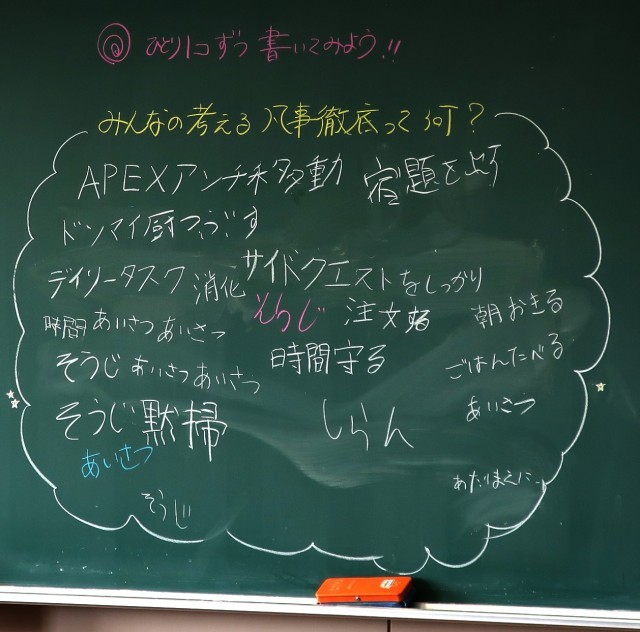 ひとり1コずつ書いてみよう!!
みんなの考える凡事徹底って何?
APEXアンチ禾多動
宿題を
ドンマイ厨つぶす
デイリータスク消化
サイドクエストをしっかり
そうじ
注文する
朝おきる
時間 あいさつ あいさつ
そうじ あいさつ あいさつ
時間守る
ごはんたべる
あいさつ
そうじ黙掃
しらん
あいさつ
あたりまえに
そうじ